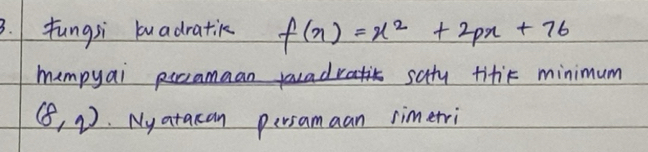 3. Fungsi kuadratik f(x) = x² + 2px + 76
mempyai persamaan kuadratik satu titik minimum
(8, q). Nyatakan persamaan simetri